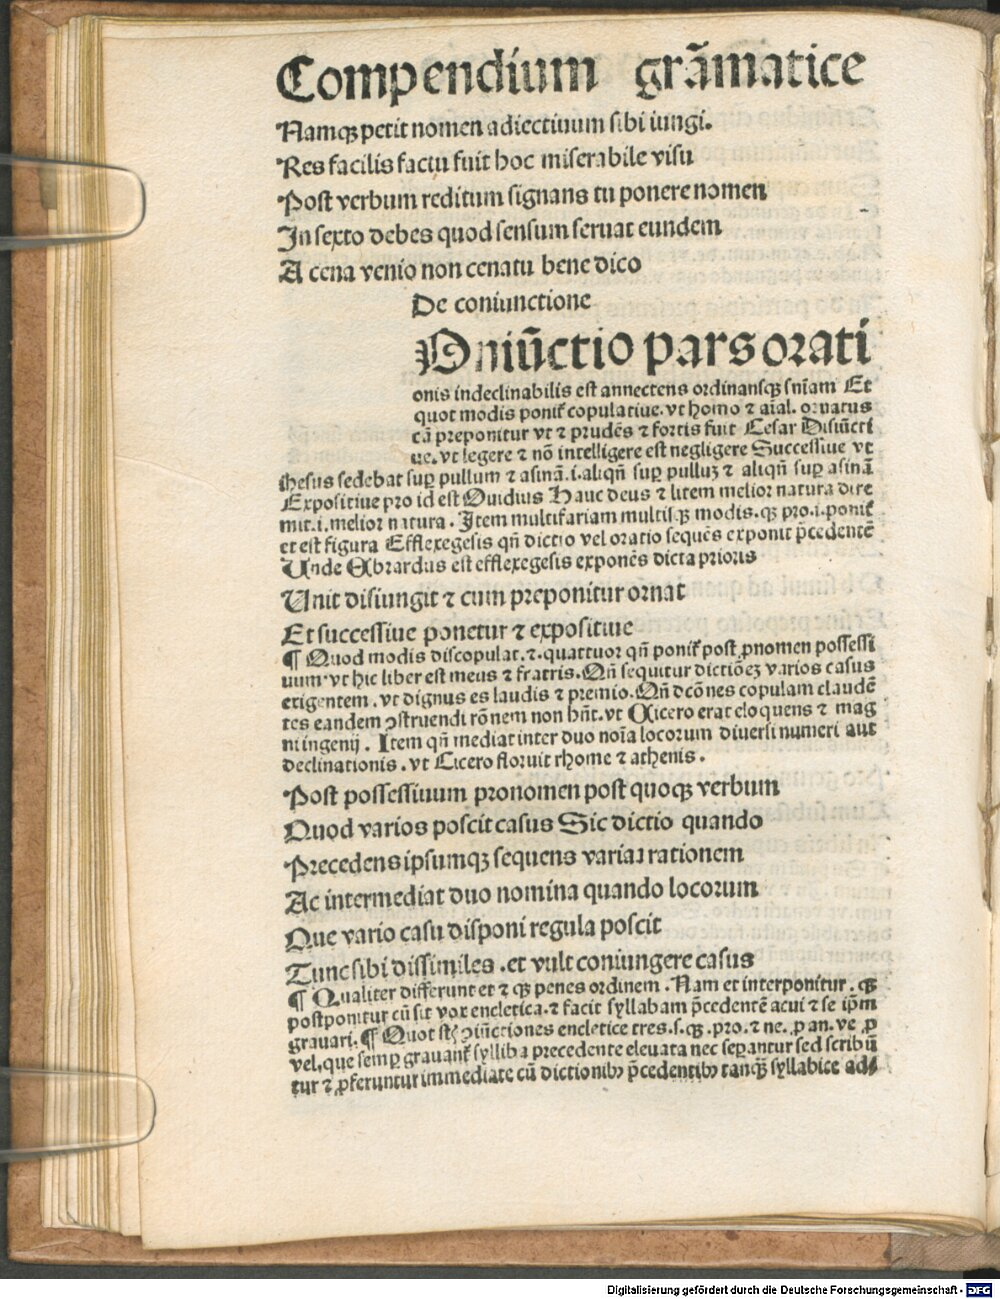 Compendium grãmatice
Namqꝫ petit nomen adiectiuum sibi iungi.
Res facilis factu fuit hoc miserabile visu
Post verbum reditum signans tu ponere nomen
In sexto debes quod sensum seruat eundem
A cena venio non cenatu bene dico
De coniunctione
Oniũctio pars orati
onis indeclinabilis est annectens ordinansqꝫ sniam Et
quot modis ponit̃ copulatiue. vt homo ⁊ aĩal. ornatus
cã preponitur vt ⁊ prudẽs ⁊ fortis fuit Cesar Disiũcti
ue. vt legere ⁊ nõ intelligere est negligere Successiue vt
ihesus sedebat sup̱ pullum ⁊ asinã .i. aliqñ sup̱ pulluꝫ ⁊ aliqñ sup̱ asinã
Expositiue pro id est Ouidius Hauc deus ⁊ litem melior natura dire
mit .i. melior natura. Item multifariam multisqꝫ modis. qꝫ pro .i. ponit̃
et est figura Efflexegesis qñ dictio vel oratio sequẽs exponit p̃cedentẽ
Unde Ebrardus est efflexegesis exponẽs dicta prioris
Unit disiungit ⁊ cum preponitur ornat
Et successiue ponetur ⁊ expositiue
¶ Quod modis discopulat .⁊. quattuor qñ ponit̃ post ꝓnomen possessi
uum. vt hic liber est meus ⁊ fratris. Qñ sequitur dictiõeꝫ varios casus
exigentem. vt dignus es laudis ⁊ premio. Qñ dcõnes copulam claudẽ
tes eandem ꝯstruendi rõnem non hñt. vt Cicero erat eloquens ⁊ mag
ni ingenij. Item qñ mediat inter duo noĩa locorum diuersi numeri aut
declinationis. vt Cicero floruit rhome ⁊ athenis.
Post possessiuum pronomen post quoqꝫ verbum
Quod varios poscit casus Sic dictio quando
Precedens ipsumqꝫ sequens variat rationem
Ac intermediat duo nomina quando locorum
Que vario casu disponi regula poscit
Tunc sibi dissimiles. et vult coniungere casus
¶ Qualiter differunt et ⁊ qꝫ penes ordinem. Nam et interponitur. qꝫ
postponitur cũ sit vox encletica. ⁊ facit syllabam p̃cedentẽ acui ⁊ se ip̃m
grauari. ¶ Quot st̃ ꝯiũctiones encletice tres. s. qꝫ. pro. ⁊ ne. ꝓ an. ve ꝓ
vel, que semp̱ grauant̃ syllaba precedente eleuata nec sep̱antur sed scribũ
tur ⁊ ꝓferuntur immediate cũ dictionibꝫ p̃cedentibꝫ tanqꝫ̃ syllabice adi
Digitalisierung gefördert durch die Deutsche Forschungsgemeinschaft - DFG